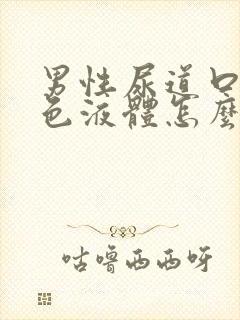 男性尿道口
色液體怎麼
咕嚕西西呀